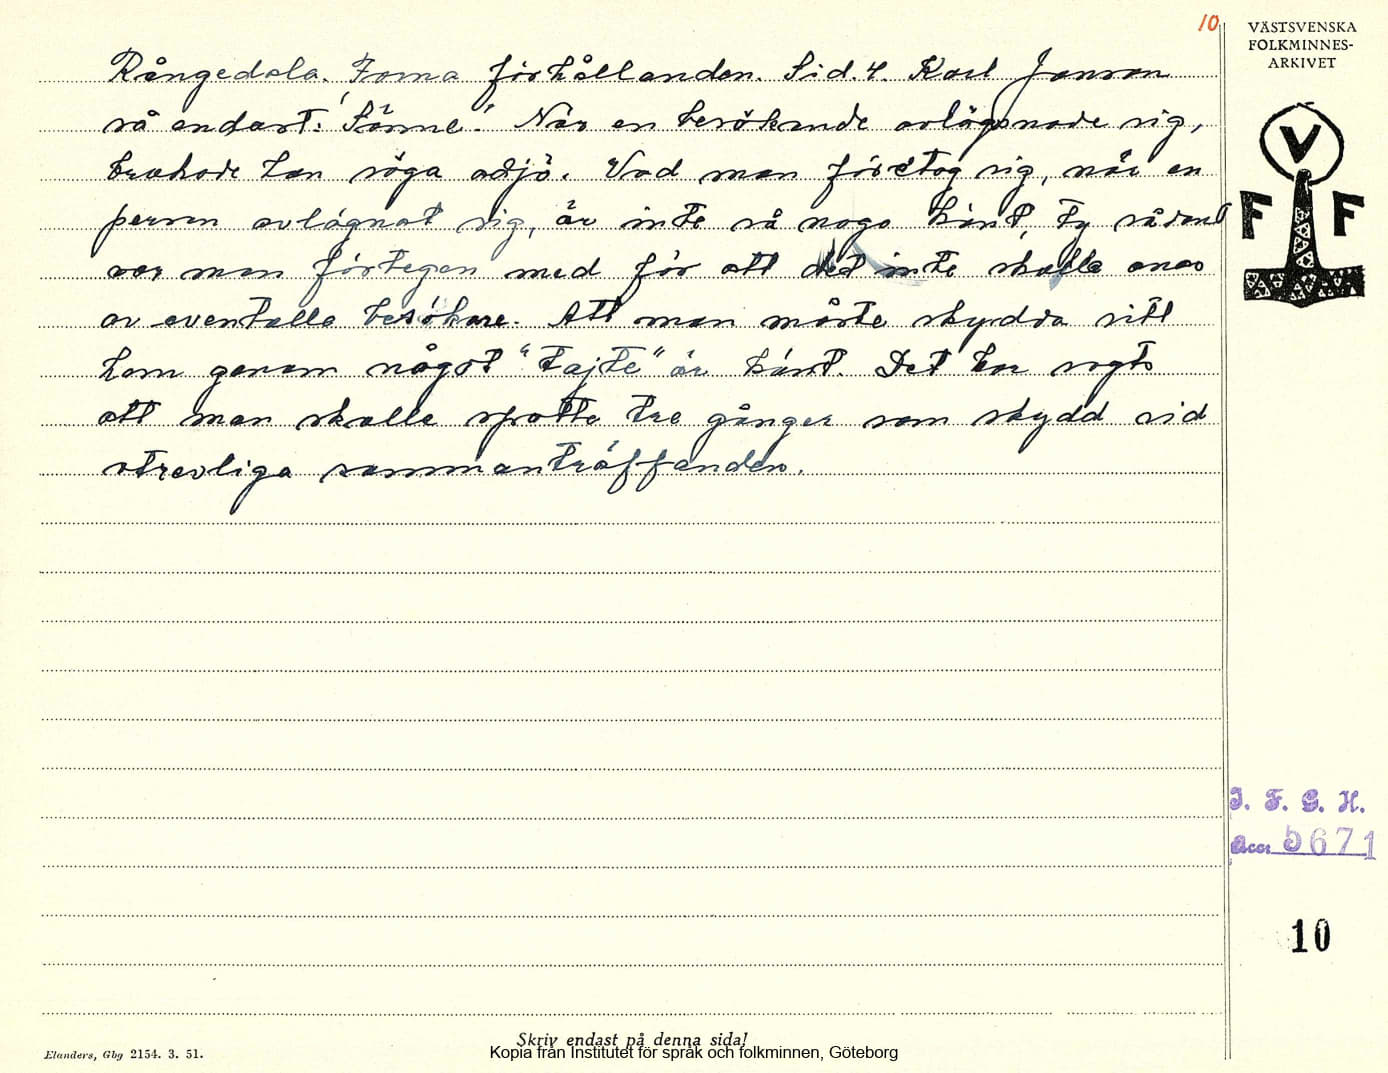 10
VÄSTSVENSKA
FOLKMINNES-
ARKIVET
Rångedala. Forna förhållanden. Sid. 4. Karl Janson
så endast: "Sänne". När en besökande avlägsnade sig,
brukade han säga adjö. Vad man företog sig, när en
person avlägnat sig, är inte så noga känt, ty sådant
var man förtegen med för att det inte skulle anas
av eventalla besökare. Att man måste skydda sitt
hem genom något "tajte" är känt. Det har sagts
att man skulle spotta tre gånger som skydd vid
otrevliga sammanträffanden.
V
F F
I. F. G. H.
Acc. 5671
10
Skriv endast på denna sida!
Elanders, Gbg 2154. 3. 51.
Kopia från Institutet för språk och folkminnen, Göteborg